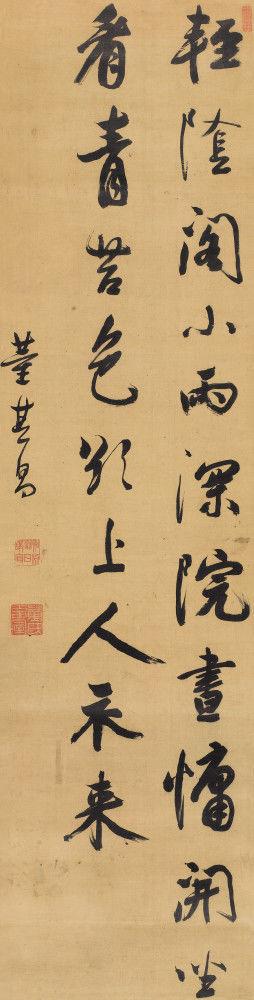 輕陰閣小雨深院晝慵開坐
看青苔色欲上人衣来
董其昌